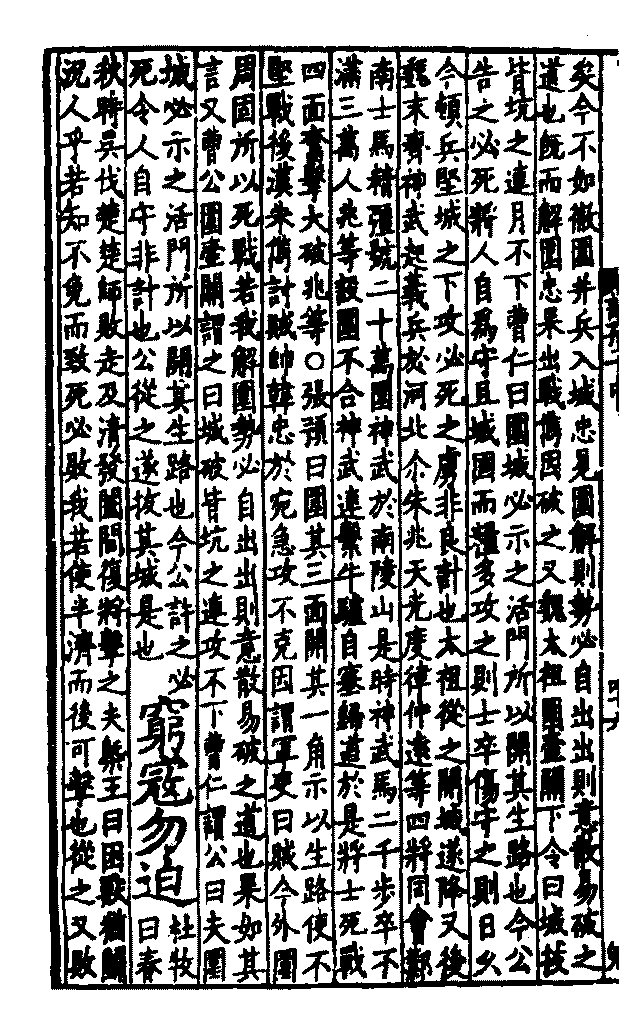 矣今不如徹圍并兵入城忠見圍解則勢必自出出則意散易破之
道也既而解圍忠果出戰儁因破之又魏太祖圍壺關下令曰城拔
皆坑之連月不下曹仁曰圍城必示之活門所以開其生路也今公
告之必死將人自為守且城固而糧多攻之則士卒傷守之則日久
今頓兵堅城之下攻必死之虜非良計也太祖從之開城遂降又後
魏末齊神武起義兵於河北尒朱兆天光度律仲遠等四將同會鄴
南士馬精彊號二十萬圍神武於南陵山是時神武馬二千步卒不
滿三萬人兆等設圍不合神武連繫牛驢自塞歸道於是將士死戰
四面奮擊大破兆等○張預曰圍其三面開其一角示以生路使不
堅戰後漢朱儁討賊帥韓忠於宛急攻不克因謂軍吏曰賊今外圍
周固所以死戰若我解圍勢必自出出則意散易破之道也果如其
言又曹公圍壺關謂之曰城破皆坑之連攻不下曹仁謂公曰夫圍
城必示之活門所以開其生路也今公許之必
死令人自守非計也公從之遂拔其城是也
窮寇勿迫
杜牧
曰春
秋時吳伐楚楚師敗走及清發闔閭復將擊之夫槩王曰困獸猶鬭
況人乎若知不免而致死必敗我若使半濟而後可擊也從之又敗